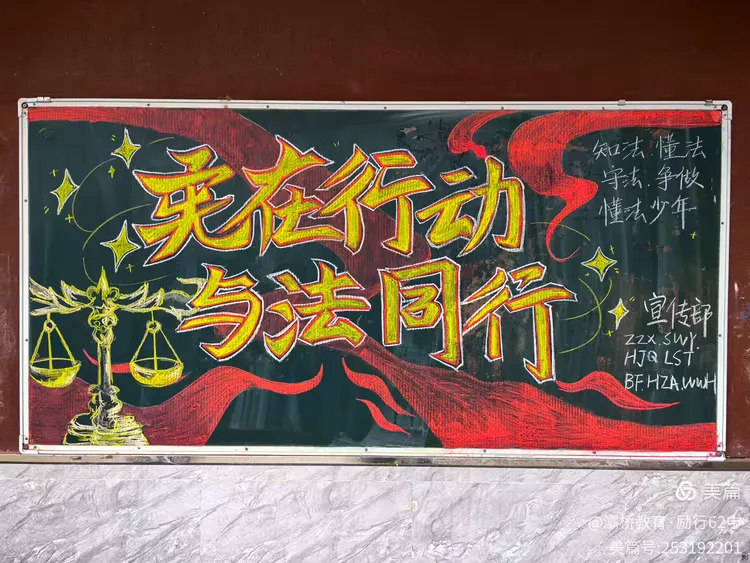 在行动
与法同行
知法.懂法
守法.争做
懂法少年
宣传部
ZZX.SWY.
HJQ LST
BF.HZA.WWH
美篇
@灞桥教育·励行62中
美篇号:253192201